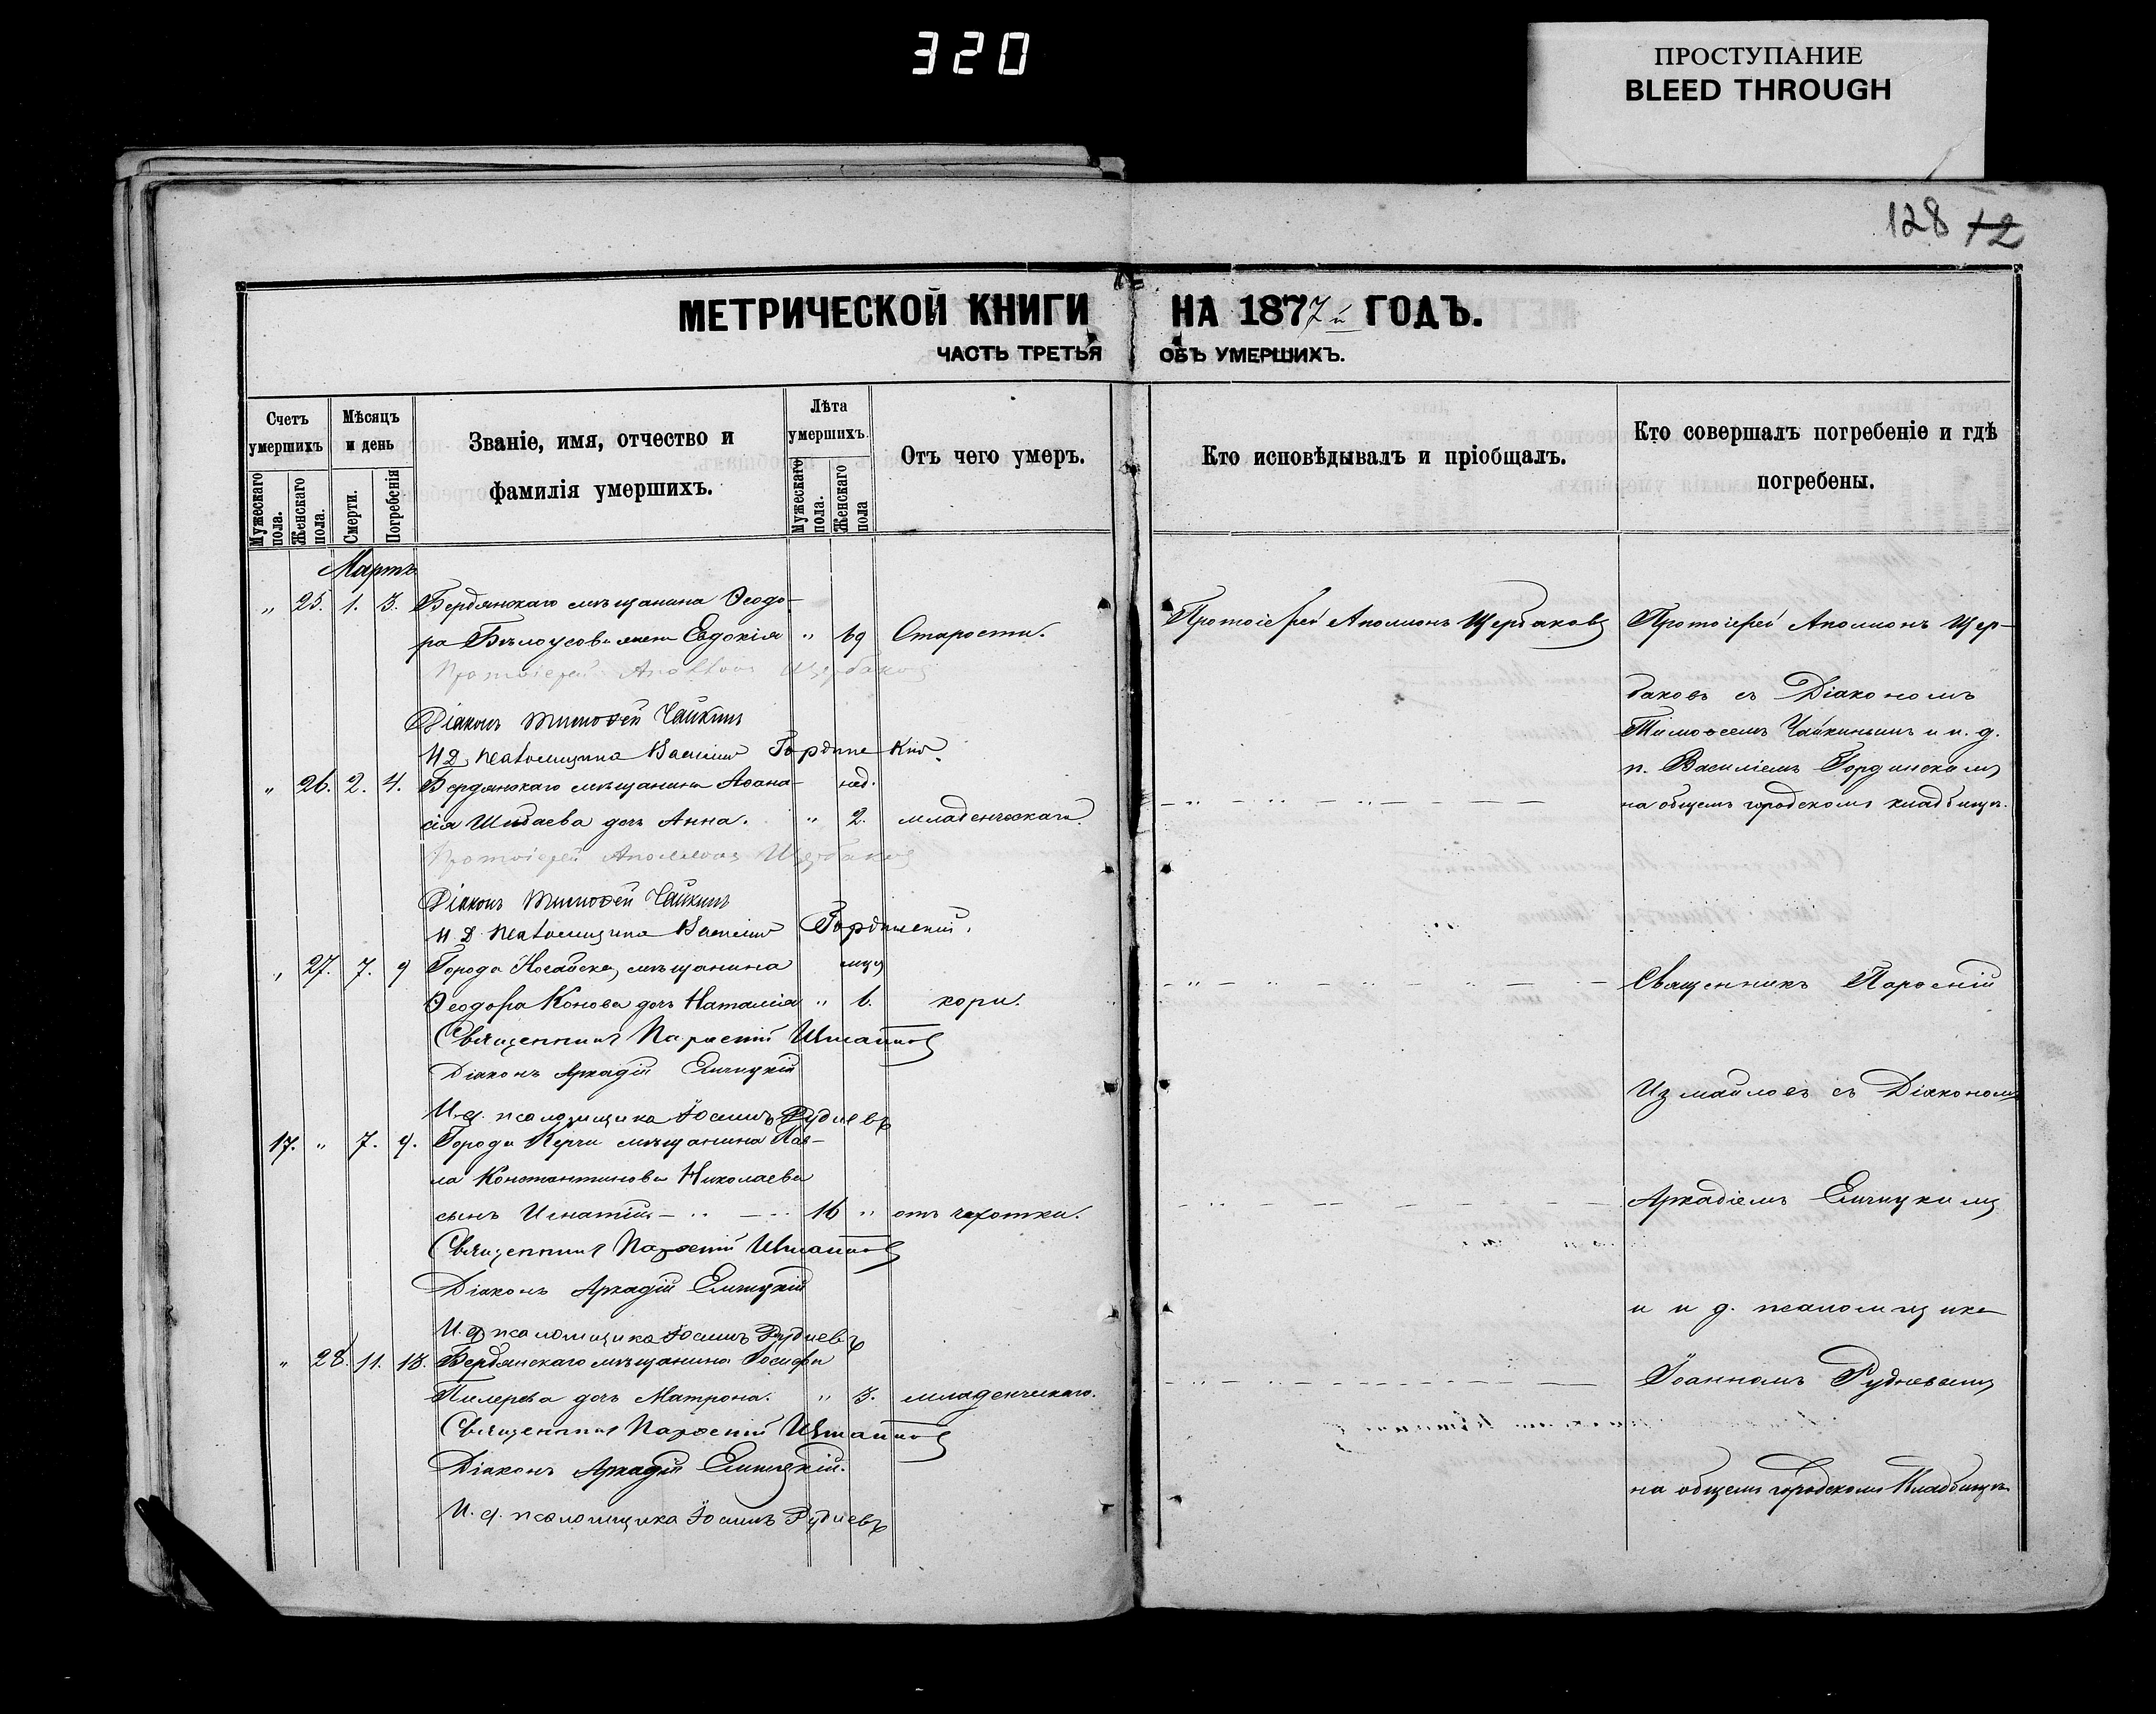 320
ПРОСТУПАНИЕ
BLEED THROUGH
128 72
МЕТРИЧЕСКОЙ КНИГИ НА 1877й ГОДЪ.
ЧАСТЬ ТРЕТЬЯ ОБЪ УМЕРШИХЪ.
Счетъ умершихъ
Мужескаго пола.
Женскаго пола.
Мѣсяцъ и день
Смерти.
Погребенія
Званіе, имя, отчество и
фамилія умершихъ.
Лѣта умершихъ.
Мужескаго пола.
Женскаго пола
Отъ чего умеръ.
Кто исповѣдывалъ и пріобщалъ.
Кто совершалъ погребеніе и гдѣ
погребены.
Мартъ
" 25. 1. 3. Бердянскаго мѣщанина Ѳеодо-
ра Бѣлоусова жена Евдокія " 69 Старости.
Протоіерей Аполлонъ Щербаковъ
Діаконъ Тимоѳей Чайкинъ
И Д. псаломщика Василій Гординскій.
" 26. 2. 4. Бердянскаго мѣщанина Аѳана- нед.
сія Шибаева дочь Анна. " 2. младенческаго.
Протоіерей Аполлонъ Щербаковъ
Діаконъ Тимоѳей Чайкинъ
И Д. псаломщика Василій Гординскій.
" 27. 7. 9 Города Ногайска, мѣщанина мця
Ѳеодора Конова дочь Наталія " 6. кори.
Священникъ Парѳеній Измаиловъ
Діаконъ Аркадій Елчицкій
И. д. псаломщика Іоаннъ Рудневъ
17. " 7. 9. Города Керчи мѣщанина Пав-
ла Константинова Николаева
сынъ Игнатій - " - " 16 " отъ чахотки.
Священникъ Парѳеній Измаиловъ
Діаконъ Аркадій Елчицкій
И. д. псаломщика Іоаннъ Рудневъ
" 28. 11. 13. Бердянскаго мѣщанина Іосифа
дочь Матрона. " 3. младенческаго.
Священникъ Парѳеній Измаиловъ
Діаконъ Аркадій Елчицкій.
И. д. псаломщика Іоаннъ Рудневъ
Протоіерей Аполлонъ Щербаковъ
Протоіерей Аполлонъ Щер-
баковъ съ Діакономъ
Тимоѳеемъ Чайкинымъ и и. д.
п. Василіемъ Гординскимъ
на общемъ городскомъ кладбищѣ.
Священникъ Парѳеній
Измаиловъ съ Діакономъ
Аркадіемъ Елчицкимъ
и и д. псаломщика
Іоанномъ Рудневымъ
на общемъ городскомъ кладбищѣ